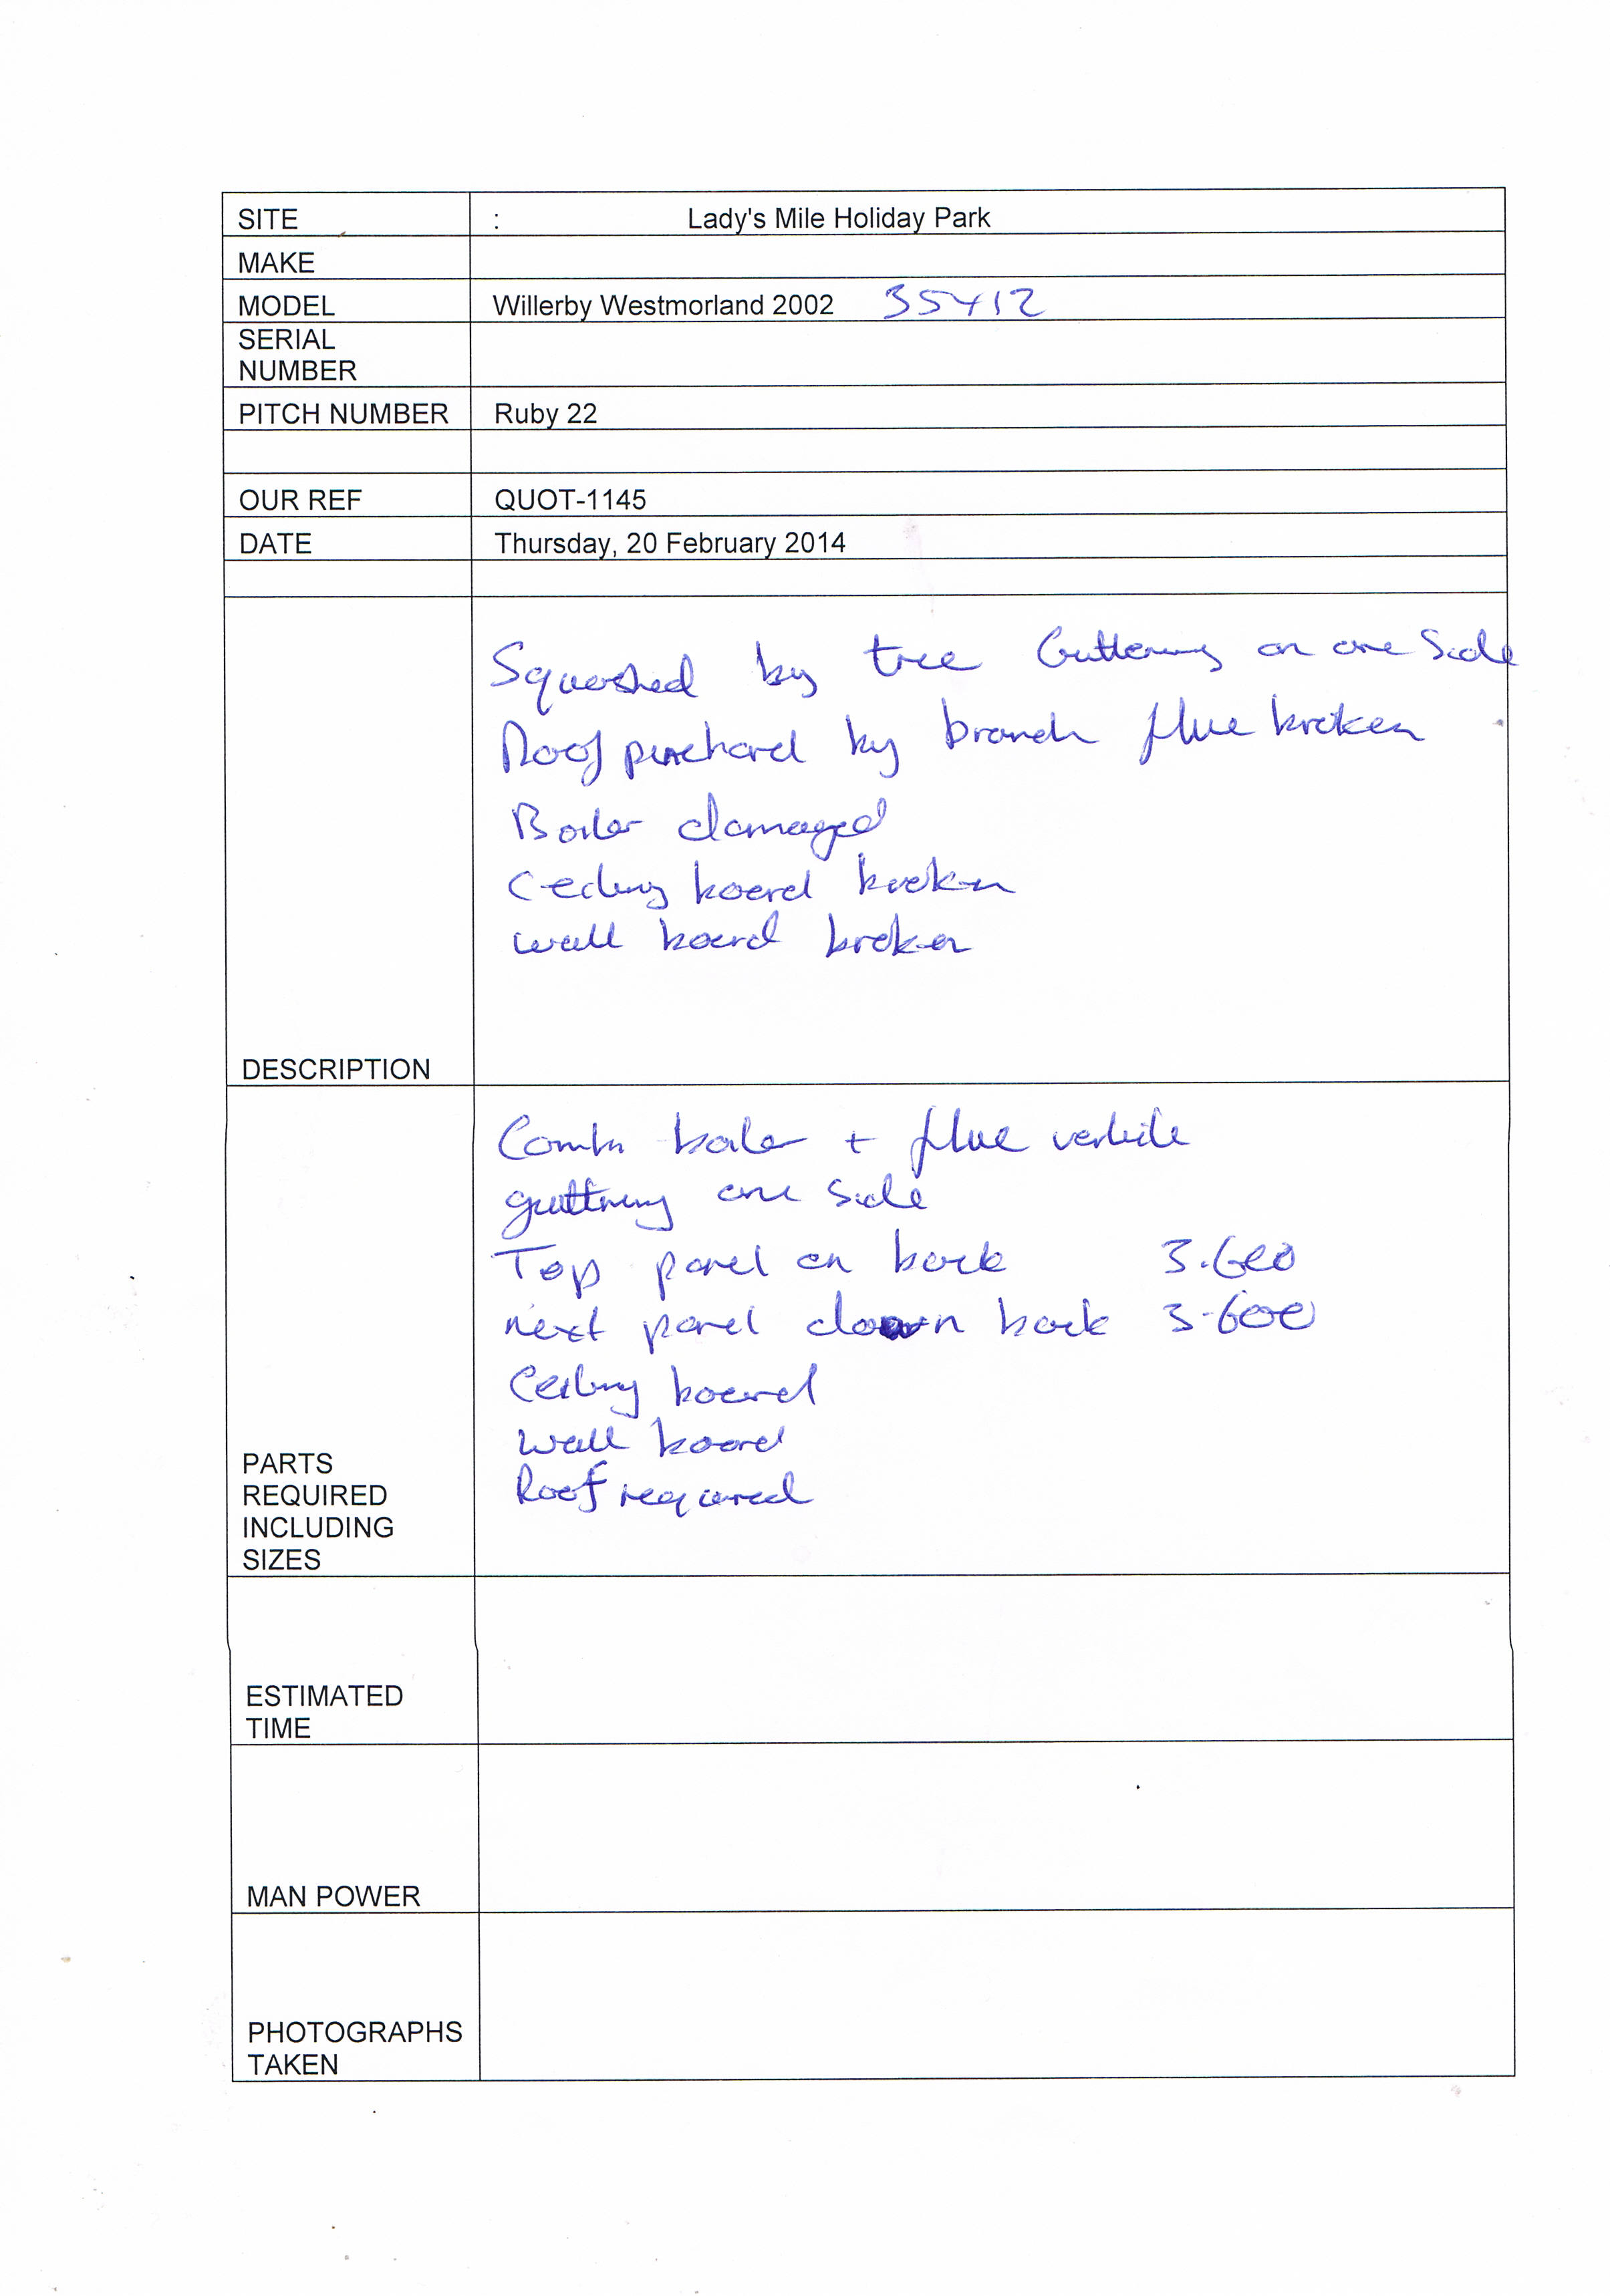 SITE : Lady's Mile Holiday Park
MAKE
MODEL Willerby Westmorland 2002 35x12
SERIAL
NUMBER
PITCH NUMBER Ruby 22
OUR REF QUOT-1145
DATE Thursday, 20 February 2014
Squashed by tree Guttering on one side
Roof punchard by branch flue broken
Boiler damaged
Ceiling board broken
wall board broken
DESCRIPTION
Combi boiler + flue
guttering one side
Top panel on back 3.600
next panel down back 3.600
Ceiling board
wall board
Roof required
PARTS
REQUIRED
INCLUDING
SIZES
ESTIMATED
TIME
MAN POWER
PHOTOGRAPHS
TAKEN